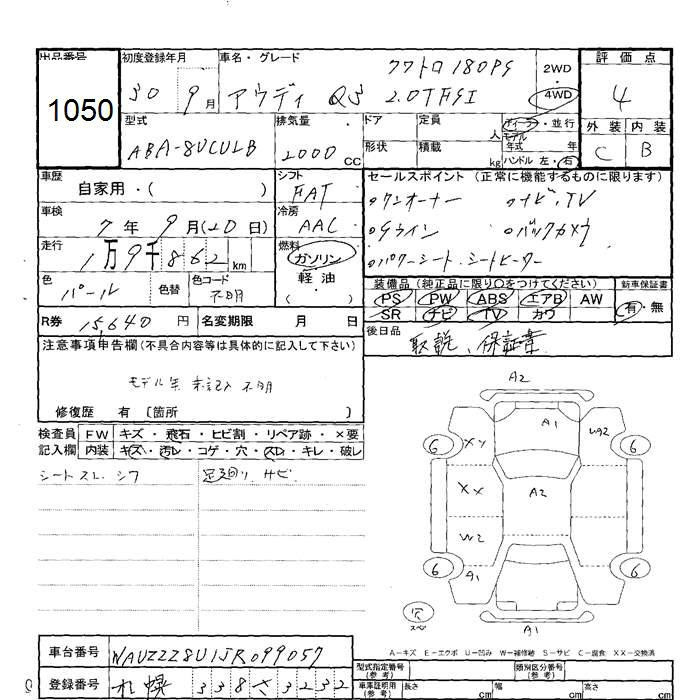 出品番号 1050
初度登録年月 30 9月
車名・グレード クワトロ 180PS
アウディ Q3 2.0TFSI
2WD 4WD
評価点 4
外装 C 内装 B
型式 ABA-8UCULB
排気量 2000 CC
ドア 定員 人
ディーラー・並行
形状 積載 kg
モデル年式 年
ハンドル 左・右
車歴 自家用・( )
シフト FAT
車検 7年 9月(20日)
冷房 AAC
走行 1万9千862 km
燃料 ガソリン・軽油・( )
色 パール 色替 色コード 不明
R券 15,640円 名変期限 月 日
セールスポイント(正常に機能するものに限ります)
ワンオーナー ナビ、TV
Sライン バックカメラ
パワーシート、シートヒーター
装備品(純正品に限り○をつけてください) 新車保証書
PS PW ABS エアB AW
SR ナビ TV カワ
有・無
後日品 取説、保証書
注意事項申告欄(不具合内容等は具体的に記入して下さい)
モデル年 未記入 不明
修復歴 有〔箇所 〕
検査員記入欄 FW キズ・飛石・ヒビ割・リペア跡・×要
内装 キズ・汚レ・コゲ・穴・スレ・キレ・破レ
シートスレ、シワ 足廻り サビ
A2
A1
XY UA2
6 6
XX A2
W2
6 6
A1
穴
スペ
A1
A-キズ E-エクボ U-凹み W-補修跡 S-サビ C-腐食 XX-交換済
車台番号 WAUZZZ8U1JR099057
登録番号 札幌 338 さ 3232
型式指定番号(参考) 類別区分番号(参考)
車庫証明用(参考) 長さ cm 幅 cm 高さ cm